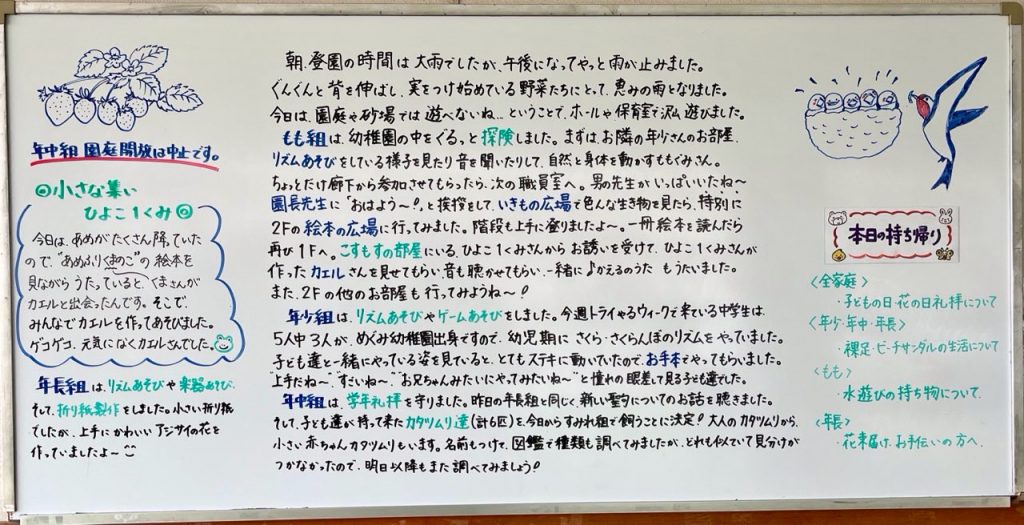 年中組 園庭開放は中止です。
◎小さな集い
ひよこ1くみ◎
今日は、あめがたくさん降っていた
ので、"あめふりくまのこ"の絵本を
見ながらうたっていると、くまさんが
カエルと出会ったんです。そこで、
みんなでカエルを作ってあそびました。
ゲコゲコ、元気になくカエルさんでした。
年長組は、リズムあそびや楽器あそび、
そして、折り紙製作をしました。小さい折り紙
でしたが、上手にかわいいアジサイの花を
作っていましたよ〜
朝、登園の時間は大雨でしたが、午後になってやっと雨が止みました。
ぐんぐんと背を伸ばし、実をつけ始めている野菜たちにとって、恵みの雨となりました。
今日は、園庭や砂場では遊べないね…ということで、ホールや保育室で沢山遊びました。
もも組は、幼稚園の中をぐるっと探険しました。まずは、お隣の年少さんのお部屋、
リズムあそびをしている様子を見たり音を聞いたりして、自然と身体を動かすももぐみさん。
ちょっとだけ廊下から参加させてもらったら、次の職員室へ。男の先生がいっぱいいたね〜
園長先生に"おはよう〜!"と挨拶をして、いきもの広場で色んな生き物を見たら、特別に
2Fの絵本の広場に行ってみました。階段も上手に登りましたよ〜。一冊絵本を読んだら
再び1Fへ。こすもすの部屋にいる、ひよこ1くみさんからお誘いを受けて、ひよこ1くみさんが
作ったカエルさんを見せてもらい、音も聴かせてもらい、一緒に♪かえるのうたもうたいました。
また、2Fの他のお部屋も行ってみようね〜!
年少組は、リズムあそびやゲームあそびをしました。今週トライやるウィークで来ている中学生は、
5人中3人が、めぐみ幼稚園出身ですので、幼児期にさくら・さくらんぼのリズムをやっていました。
子ども達と一緒にやっている姿を見ていると、とてもステキに動いていたので、お手本でやってもらいました。
"上手だね〜""すごいね〜""お兄ちゃんみたいにやってみたいね〜"と憧れの眼差しで見る子ども達でした。
年中組は、学年礼拝を守りました。昨日の年長組と同じく、新しい聖句についてのお話を聴きました。
そして、子ども達が持って来たカタツムリ達(計6匹)を今日からすみれ組で飼うことに決定!大人のカタツムリから、
小さい赤ちゃんカタツムリもいます。名前もつけて、図鑑で種類も調べてみましたが、どれも似ていて見分けが
つかなかったので、明日以降もまた調べてみましょう!
本日の持ち帰り
〈全家庭〉
・子どもの日・花の日礼拝について
〈年少・年中・年長〉
・裸足・ビーチサンダルの生活について
〈もも〉
・水遊びの持ち物について
〈年長〉
・花束届け、お手伝いの方へ